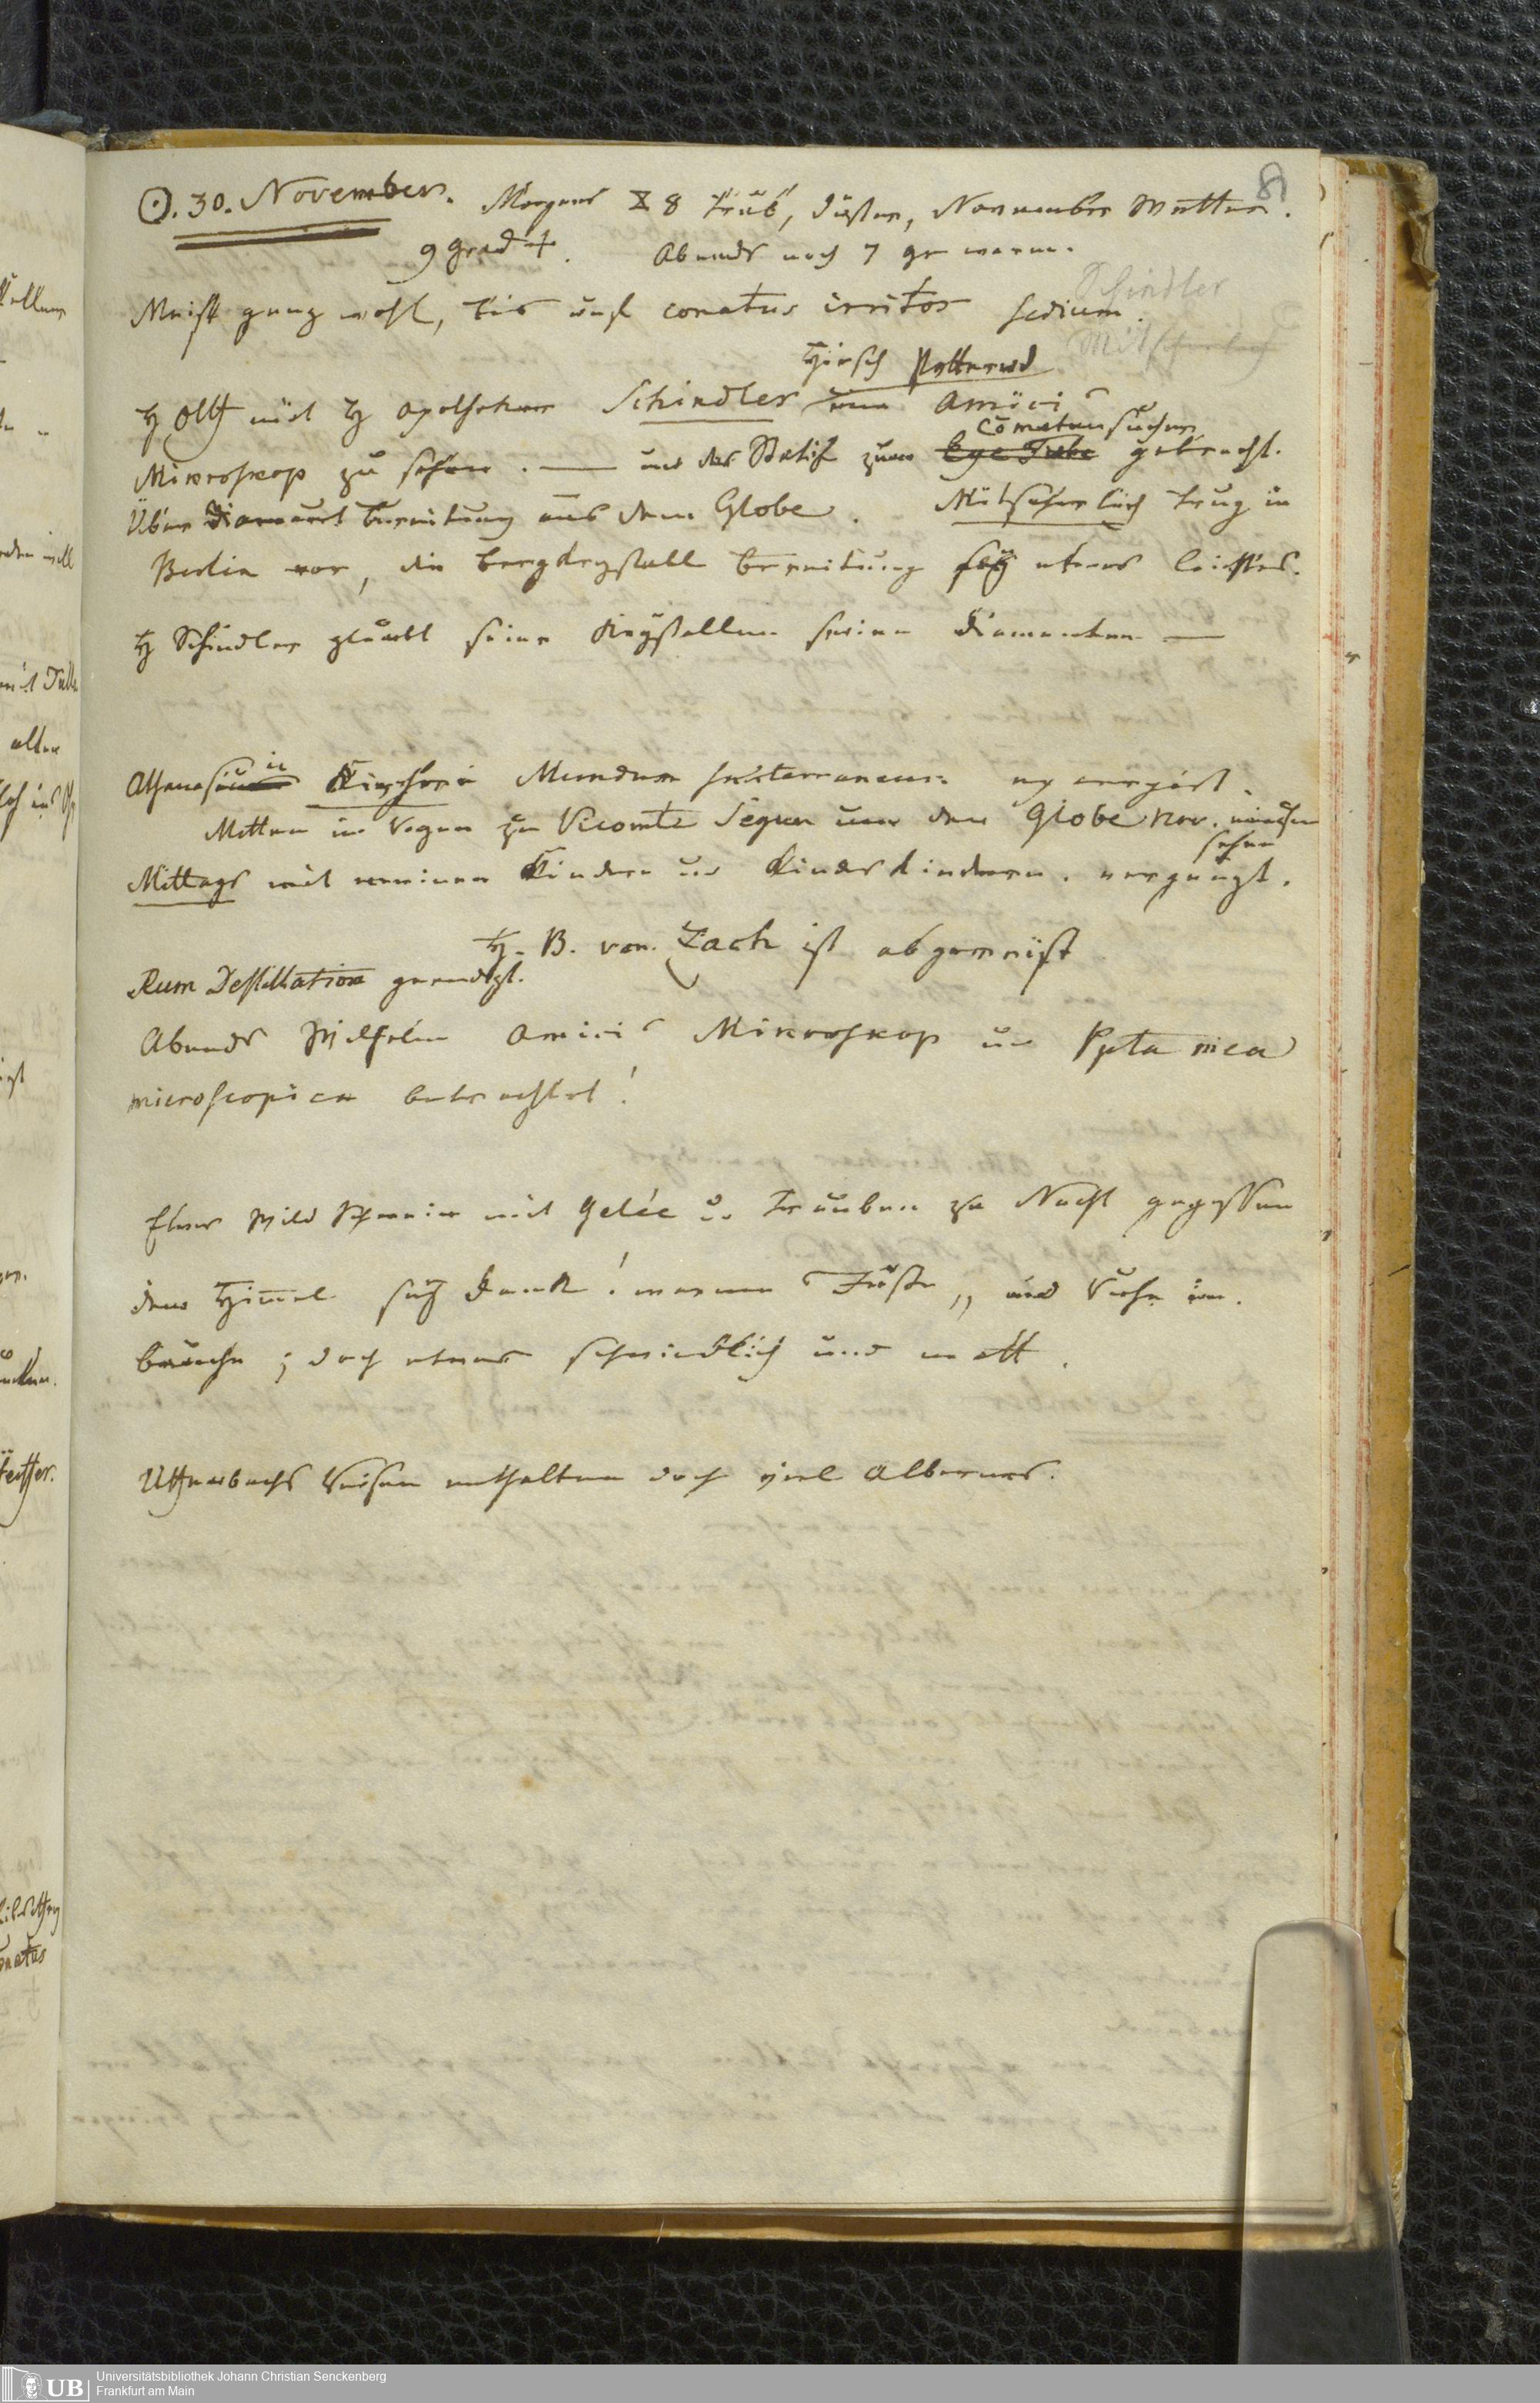 8
☉. 30. November. Morgens 8 trüb, düster, November Wetter.
9 Grad +. Abends noch 7 gr warm.
Meist ganz wohl, bis auf conatus irritos sedium.
Schindler
Mitscherlich
Hirsch
H Oth mit H Apotheker Schindler um Amici's
Cometensucher
Mikroskop zu sehen. — und das Stativ zum gebracht.
Über Diamant bereitung aus dem Globe. Mitscherlich trug in
Berlin vor, die bergkrystall bereitung sey etwas leichtes.
H Schindler glaubt seine Krystallen seien Diamanten —
ii
Athanasii Kircheri Mundum subterraneum
Mitten im Regen zu Vicomte Segur um den Globe Nov.
sehr
Mittags mit meinen Kindern und Kindeskindern. vergnügt.
H. B. von Zach ist abgereist
Rum Destillation geendigt.
Abends Wilhelm Amici's Mikroskop und Ppta mea
microscopica betrachtet!
Etwas Wild Schwein mit Gelée u. Trauben zu Nacht gegessen
dem Himmel sey Dank! warme Füße,, und Ruhe im
bauche; doch etwas schwindlich und matt.
Uffenbachs Reisen enthalten doch viel Albernes.
Universitätsbibliothek Johann Christian Senckenberg
UB Frankfurt am Main